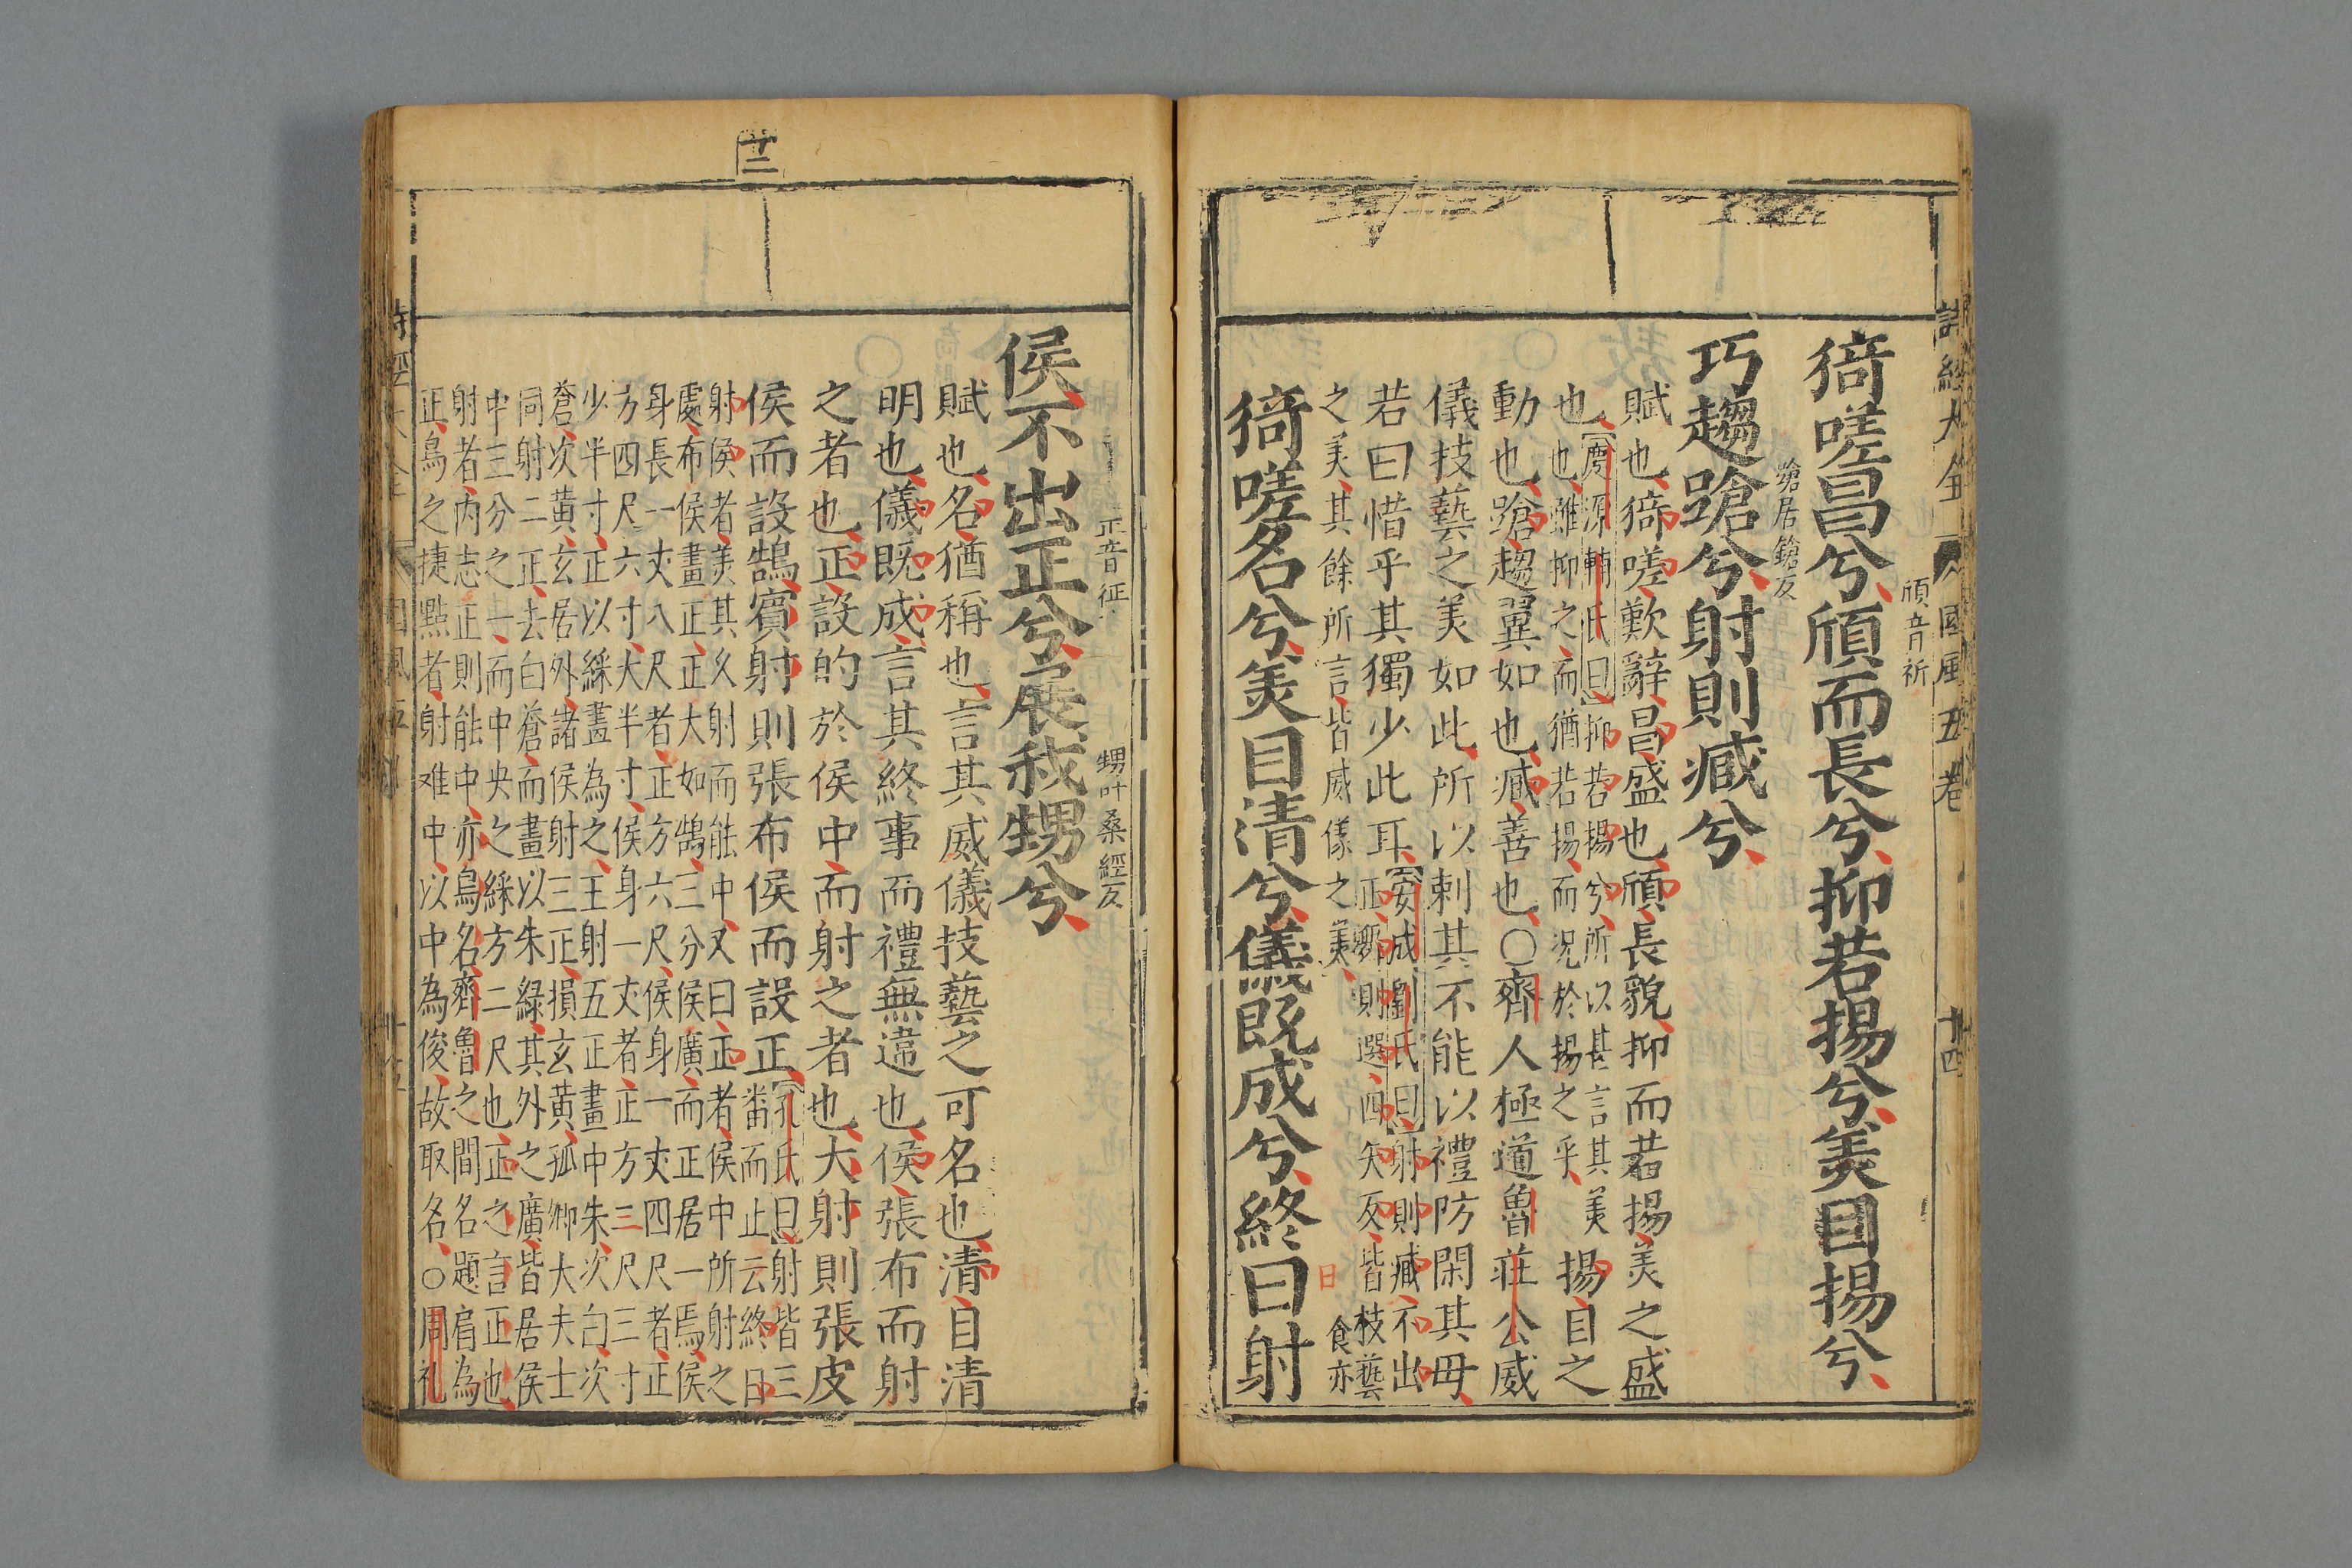 詩經大全 國風五卷 十四
猗嗟昌兮頎而長兮抑若揚兮羙目揚兮
頎音祈
巧趨蹌兮射則臧兮
蹌居鎗反
賦也猗嗟歎辭昌盛也頎長貌抑而若揚羙之盛
也慶源輔氏曰抑若揚兮所以甚言其羙
也也雖抑之而猶若揚而況於揚之乎
揚目之
動也蹌趨翼如也臧善也○齊人極道魯莊公威
儀技藝之羙如此所以刺其不能以禮防閑其母
若曰惜乎其獨少此耳安成劉氏曰射則臧不出
正鄭則選四矢反皆技藝
之羙其餘所言皆威儀之羙
食亦
猗嗟名兮羙目清兮儀既成兮終日射
日
侯不出正兮展我甥兮
正音征
甥叶桑經反
賦也名猶稱也言其威儀技藝之可名也清目清
明也儀既成言其終事而禮無違也侯張布而射
之者也正設的於侯中而射之者也大射則張皮
侯而設鵠賓射則張布侯而設正孔氏曰射皆三
番而止云終日
射侯者羙其久射而能中又曰正者侯中所射之
處布侯畫正正大如鵠三分侯廣而正居一焉侯
身長一丈八尺者正方六尺侯身一丈四尺者正
方四尺六寸大半寸侯身一丈者正方三尺三寸
少半寸正以綵畫為之王射五正畫中朱次白次
蒼次黃玄居外諸侯射三正損玄黃孤卿大夫士
同射二正去白蒼而畫以朱綠其外之廣皆居侯
中三分之一而中央之綵方二尺也正之言正也
射者內志正則能中亦鳥名齊魯之間名題肩為
正鳥之捷黠者射难中以中為俊故取名○周礼
十二